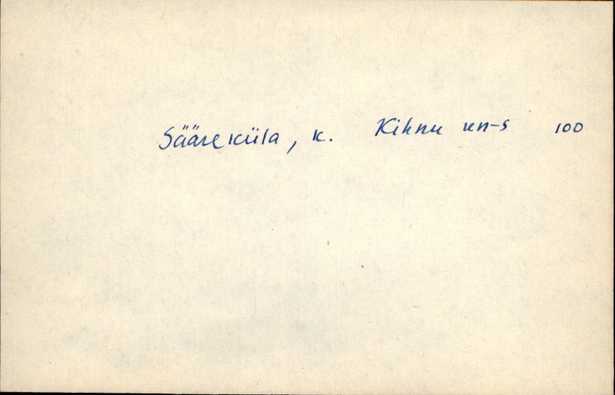 Sääreküla, k. Kihnu kn-s 100